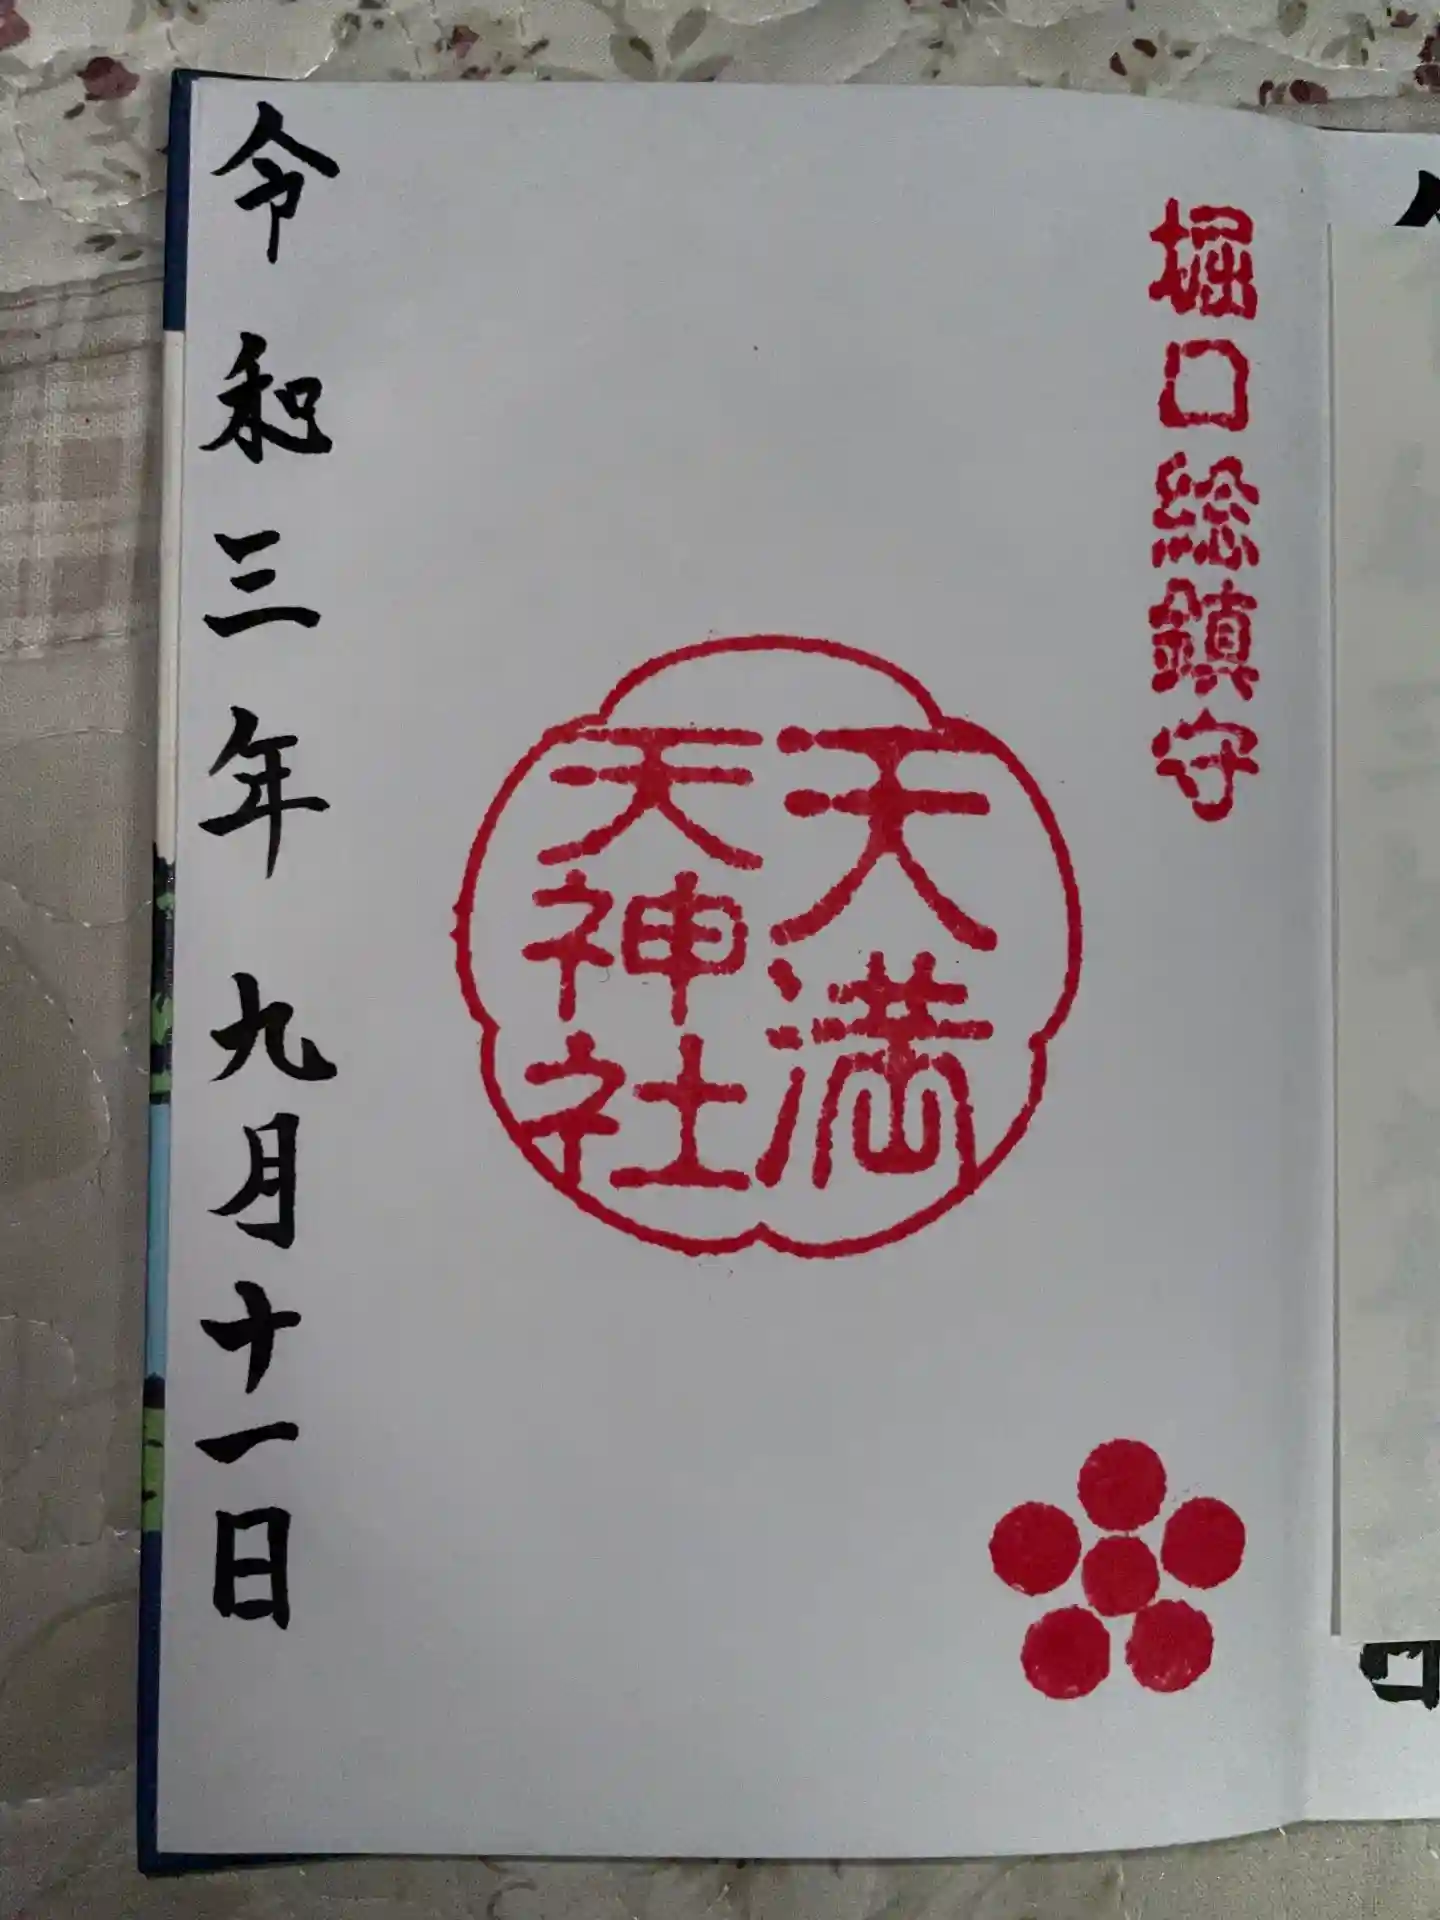 堀口総鎮守
天満
天神社
令和三年九月十一日